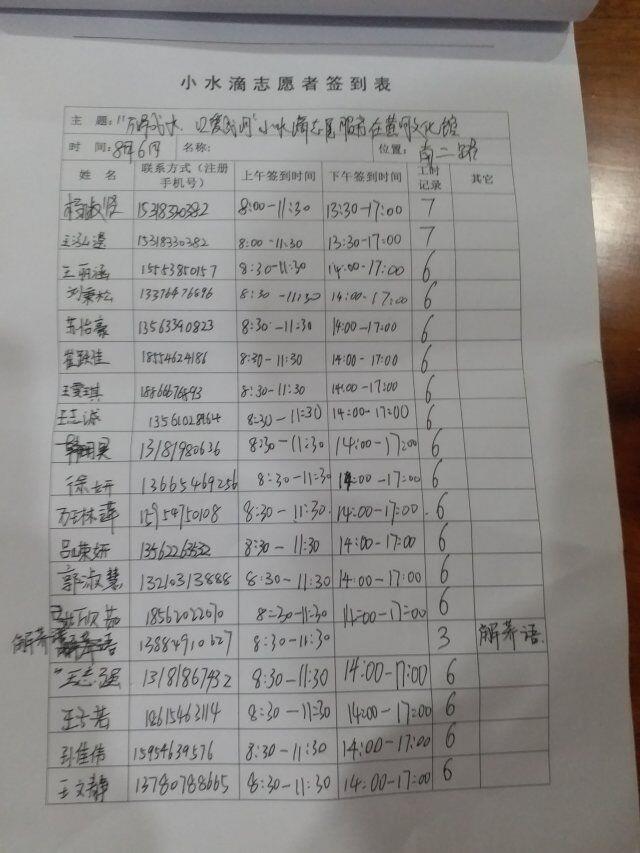 小水滴志愿者签到表
主 题: 小水滴志愿服务在黄河文化馆
时 间: 8月6日 名称: 位置: 南二路
姓 名 联系方式（注册手机号） 上午签到时间 下午签到时间 工时记录 其它
杨淑贤 15318330382 8:00-11:30 13:30-17:00 7
15318330382 8:00-11:30 13:30-17:00 7
王丽涵 15553850157 8:30-11:30 14:00-17:00 6
刘秉松 13376476896 8:30-11:30 14:00-17:00 6
苏怡豪 13563390823 8:30-11:30 14:00-17:00 6
崔跃佳 18554624186 8:30-11:30 14:00-17:00 6
王雯琪 8:30-11:30 14:00-17:00 6
王志诚 8:30-11:30 14:00-17:00 6
13181980636 8:30-11:30 14:00-17:00 6
徐妍 13665469256 8:30-11:30 14:00-17:00 6
15954750108 8:30-11:30 14:00-17:00 6
吕荣妍 8:30-11:30 14:00-17:00 6
郭淑慧 13210313888 8:30-11:30 14:00-17:00 6
18562022070 8:30-11:30 14:00-17:00 6
解荞语 13884910627 8:30-11:30 3 解荞语
王志强 13181867432 8:30-11:30 14:00-17:00 6
王子若 8:30-11:30 14:00-17:00 6
孙佳伟 15954639576 8:30-11:30 14:00-17:00 6
王文静 13780788665 8:30-11:30 14:00-17:00 6